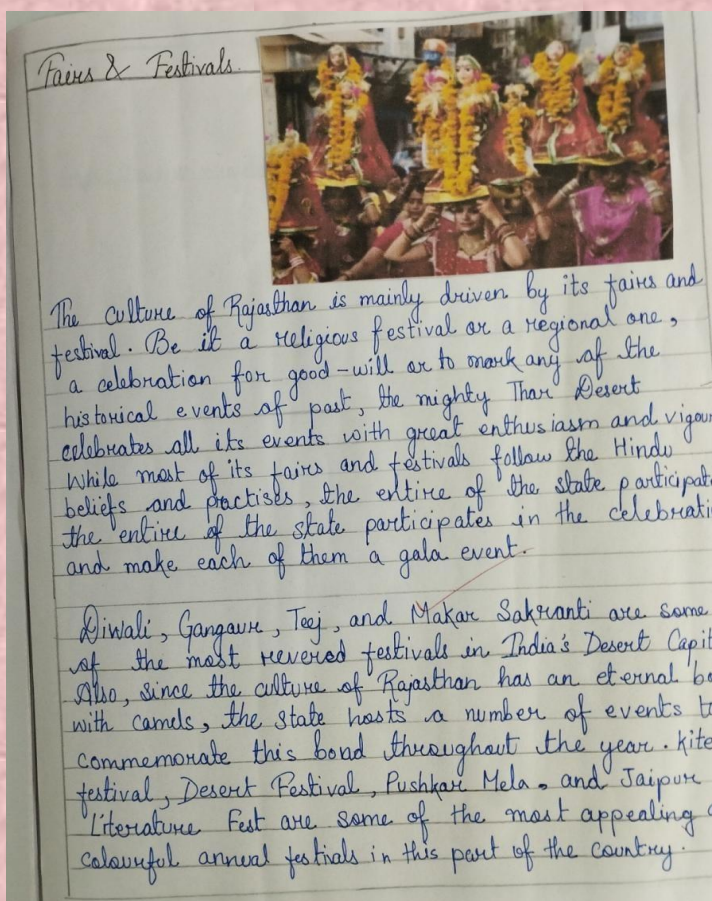 Fairs & Festivals
The culture of Rajasthan is mainly driven by its fairs and
festival. Be it a religious festival or a regional one,
a celebration for good-will or to mark any of the
historical events of past, the mighty Thar Desert
celebrates all its events with great enthusiasm and vigour
While most of its fairs and festivals follow the Hindu
beliefs and practises, the entire of the state participat
the entire of the state participates in the celebrati
and make each of them a gala event.
Diwali, Gangaur, Teej, and Makar Sakranti are some
of the most revered festivals in India's Desert Capit
Also, since the culture of Rajasthan has an eternal bo
with camels, the state hosts a number of events t
commemorate this bond throughout the year. Kite
festival, Desert Festival, Pushkar Mela, and Jaipur
Literature Fest are some of the most appealing
colourful annual festials in this part of the country.